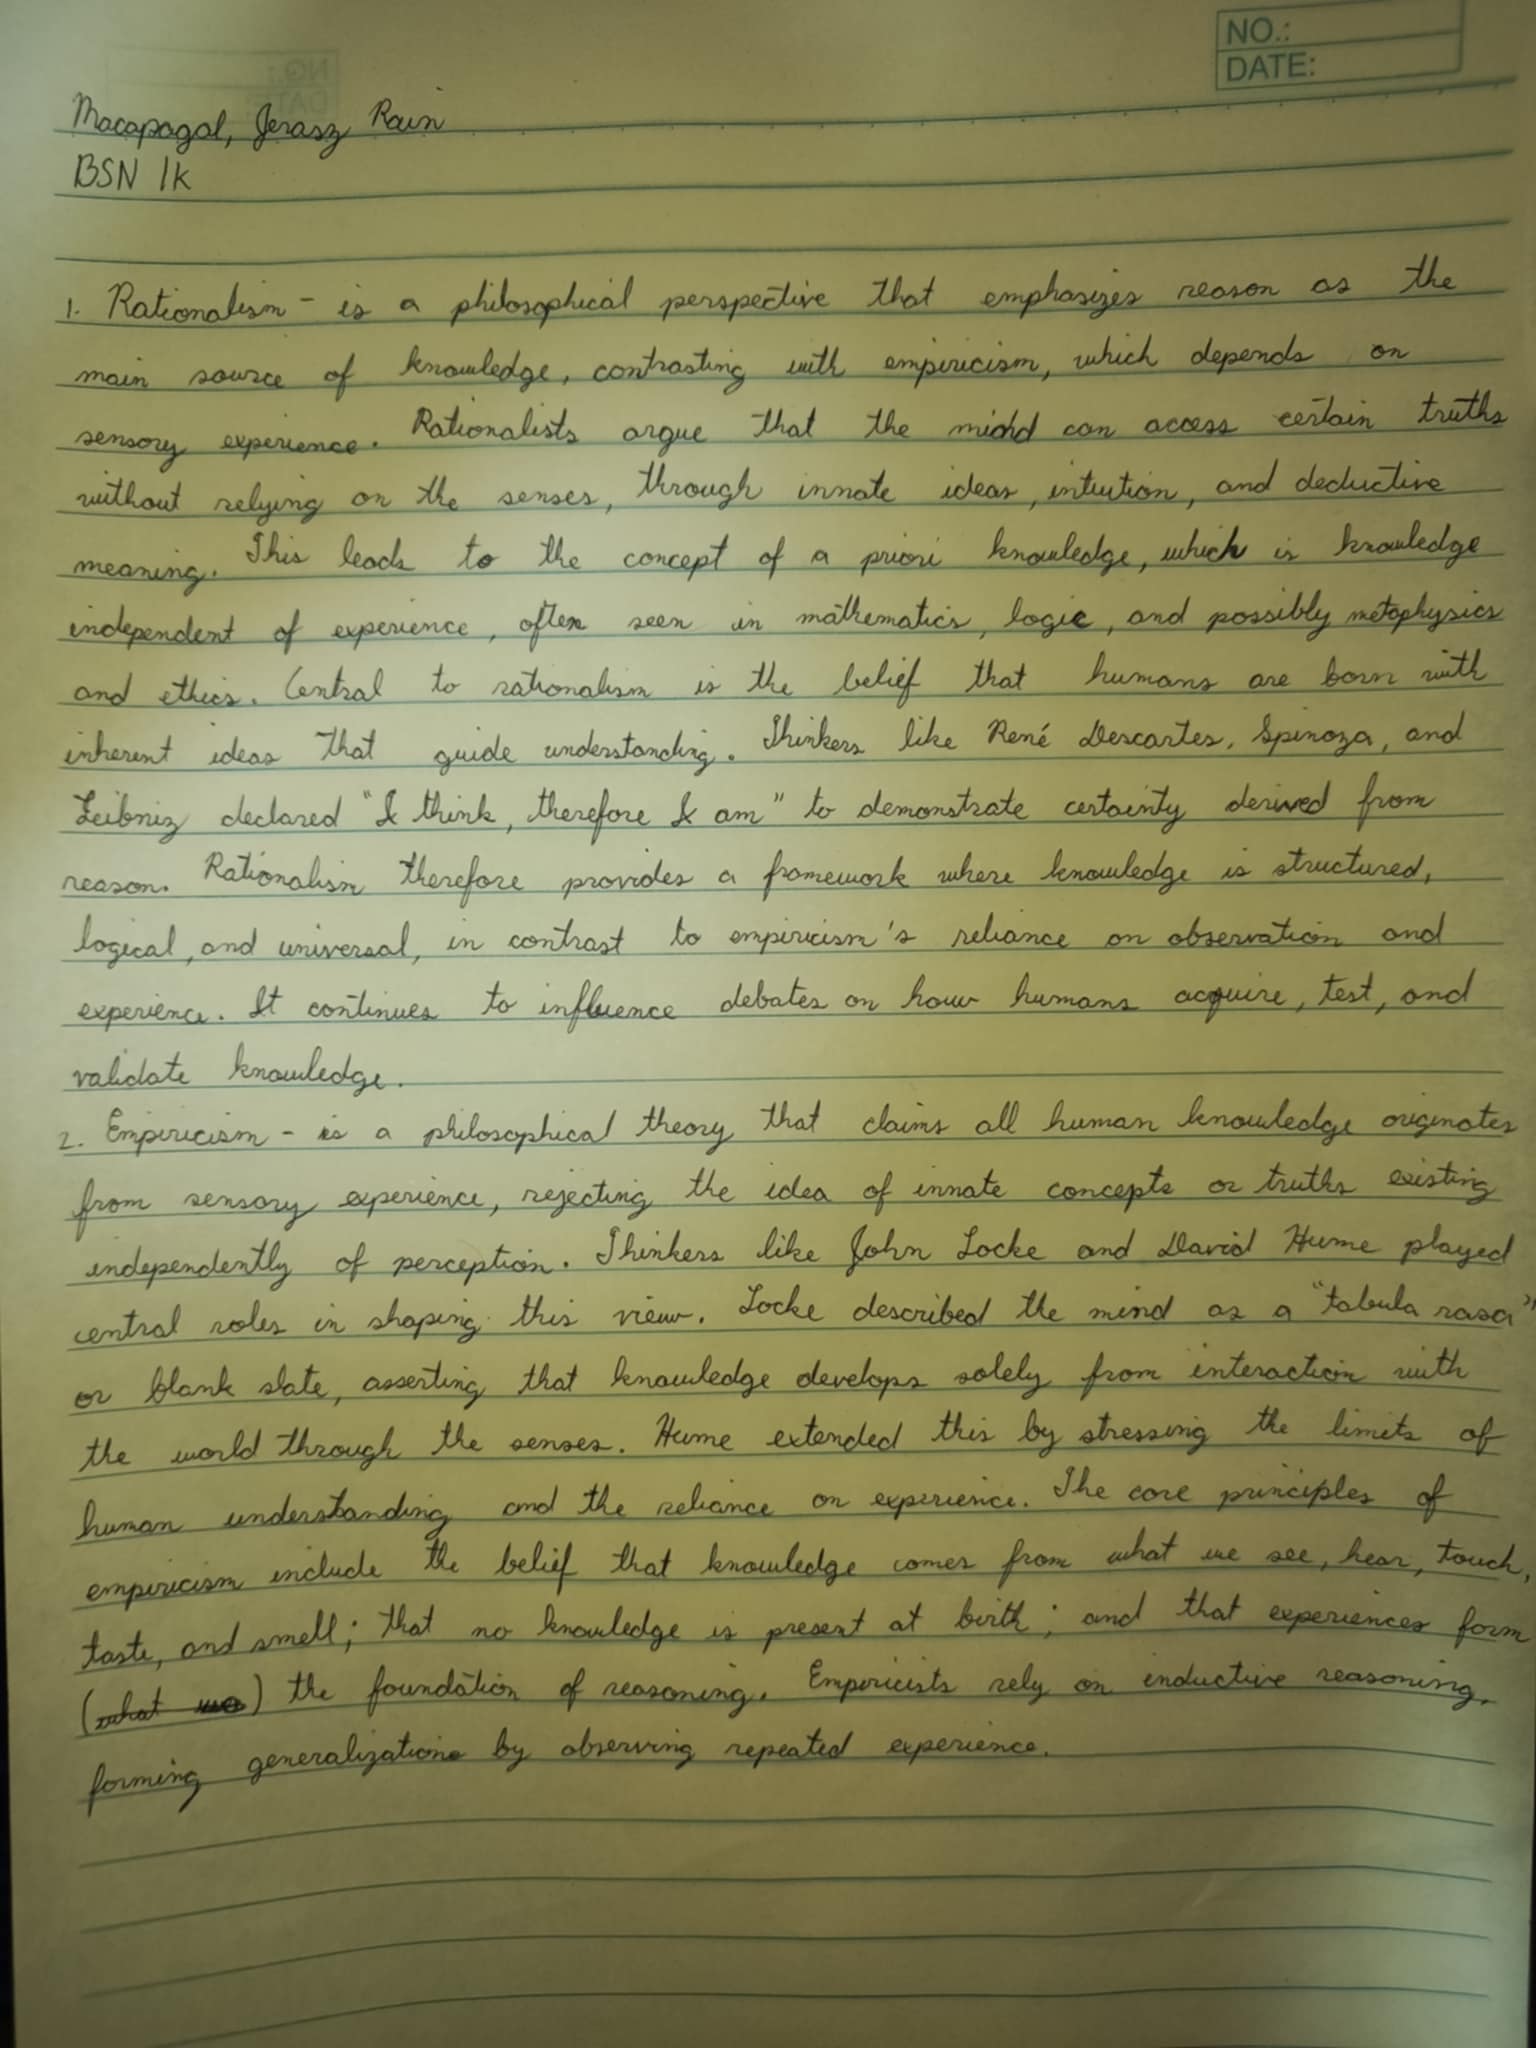 NO.:
DATE:
Macapagal, Jerasz Rain
BSN 1k
1. Rationalism - is a philosophical perspective that emphasizes reason as the
main source of knowledge, contrasting with empiricism, which depends on
sensory experience. Rationalists argue that the mind can access certain truths
without relying on the senses, through innate ideas, intuition, and deductive
meaning. This leads to the concept of a priori knowledge, which is knowledge
independent of experience, often seen in mathematics, logic, and possibly metaphysics
and ethics. Central to rationalism is the belief that humans are born with
inherent ideas that guide understanding. Thinkers like René Descartes, Spinoza, and
Leibniz declared "I think, therefore I am" to demonstrate certainty derived from
reason. Rationalism therefore provides a framework where knowledge is structured,
logical, and universal, in contrast to empiricism's reliance on observation and
experience. It continues to influence debates on how humans acquire, test, and
validate knowledge.
2. Empiricism - is a philosophical theory that claims all human knowledge originates
from sensory experience, rejecting the idea of innate concepts or truths existing
independently of perception. Thinkers like John Locke and David Hume played
central roles in shaping this view. Locke described the mind as a "tabula rasa"
or blank slate, asserting that knowledge develops solely from interaction with
the world through the senses. Hume extended this by stressing the limits of
human understanding and the reliance on experience. The core principles of
empiricism include the belief that knowledge comes from what we see, hear, touch,
taste, and smell; that no knowledge is present at birth; and that experiences form
(what we) the foundation of reasoning. Empiricists rely on inductive reasoning,
forming generalizations by observing repeated experience.